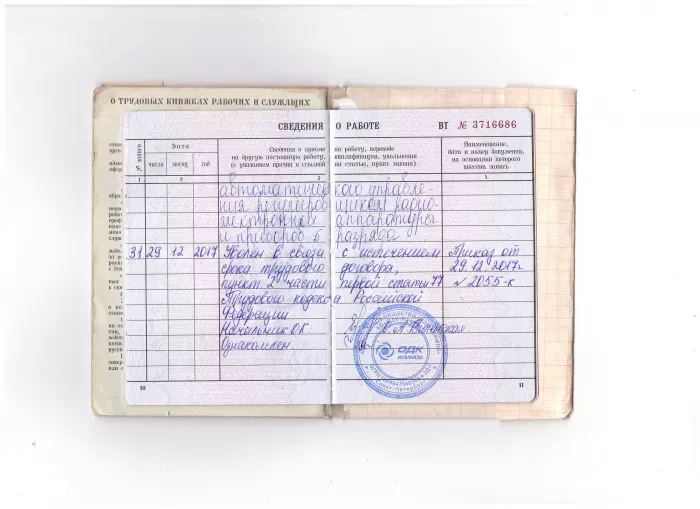 О ТРУДОВЫХ КНИЖКАХ РАБОЧИХ И СЛУЖАЩИХ
СВЕДЕНИЯ О РАБОТЕ ВТ № 3716686
№ записи
Дата
число месяц год
Сведения о приеме на работу, переводе
на другую постоянную работу, квалификации, увольнении
(с указанием причин и ссылкой на статью, пункт закона)
Наименование,
дата и номер документа,
на основании которого
внесена запись
1 2 3 4
автоматического управле-
ния регулировщиком радио-
электронной аппаратуры
и приборов 5 разряда
31 29 12 2017 Уволен в связи с истечением Приказ от
срока трудового договора, 29.12.2017г
пункт 2 части первой статьи 77 № 2055-к
Трудового кодекса Российской
Федерации
Начальник ОК
Ознакомлен.
ОДК
КЛИМОВ
Санкт-Петербург
10 11